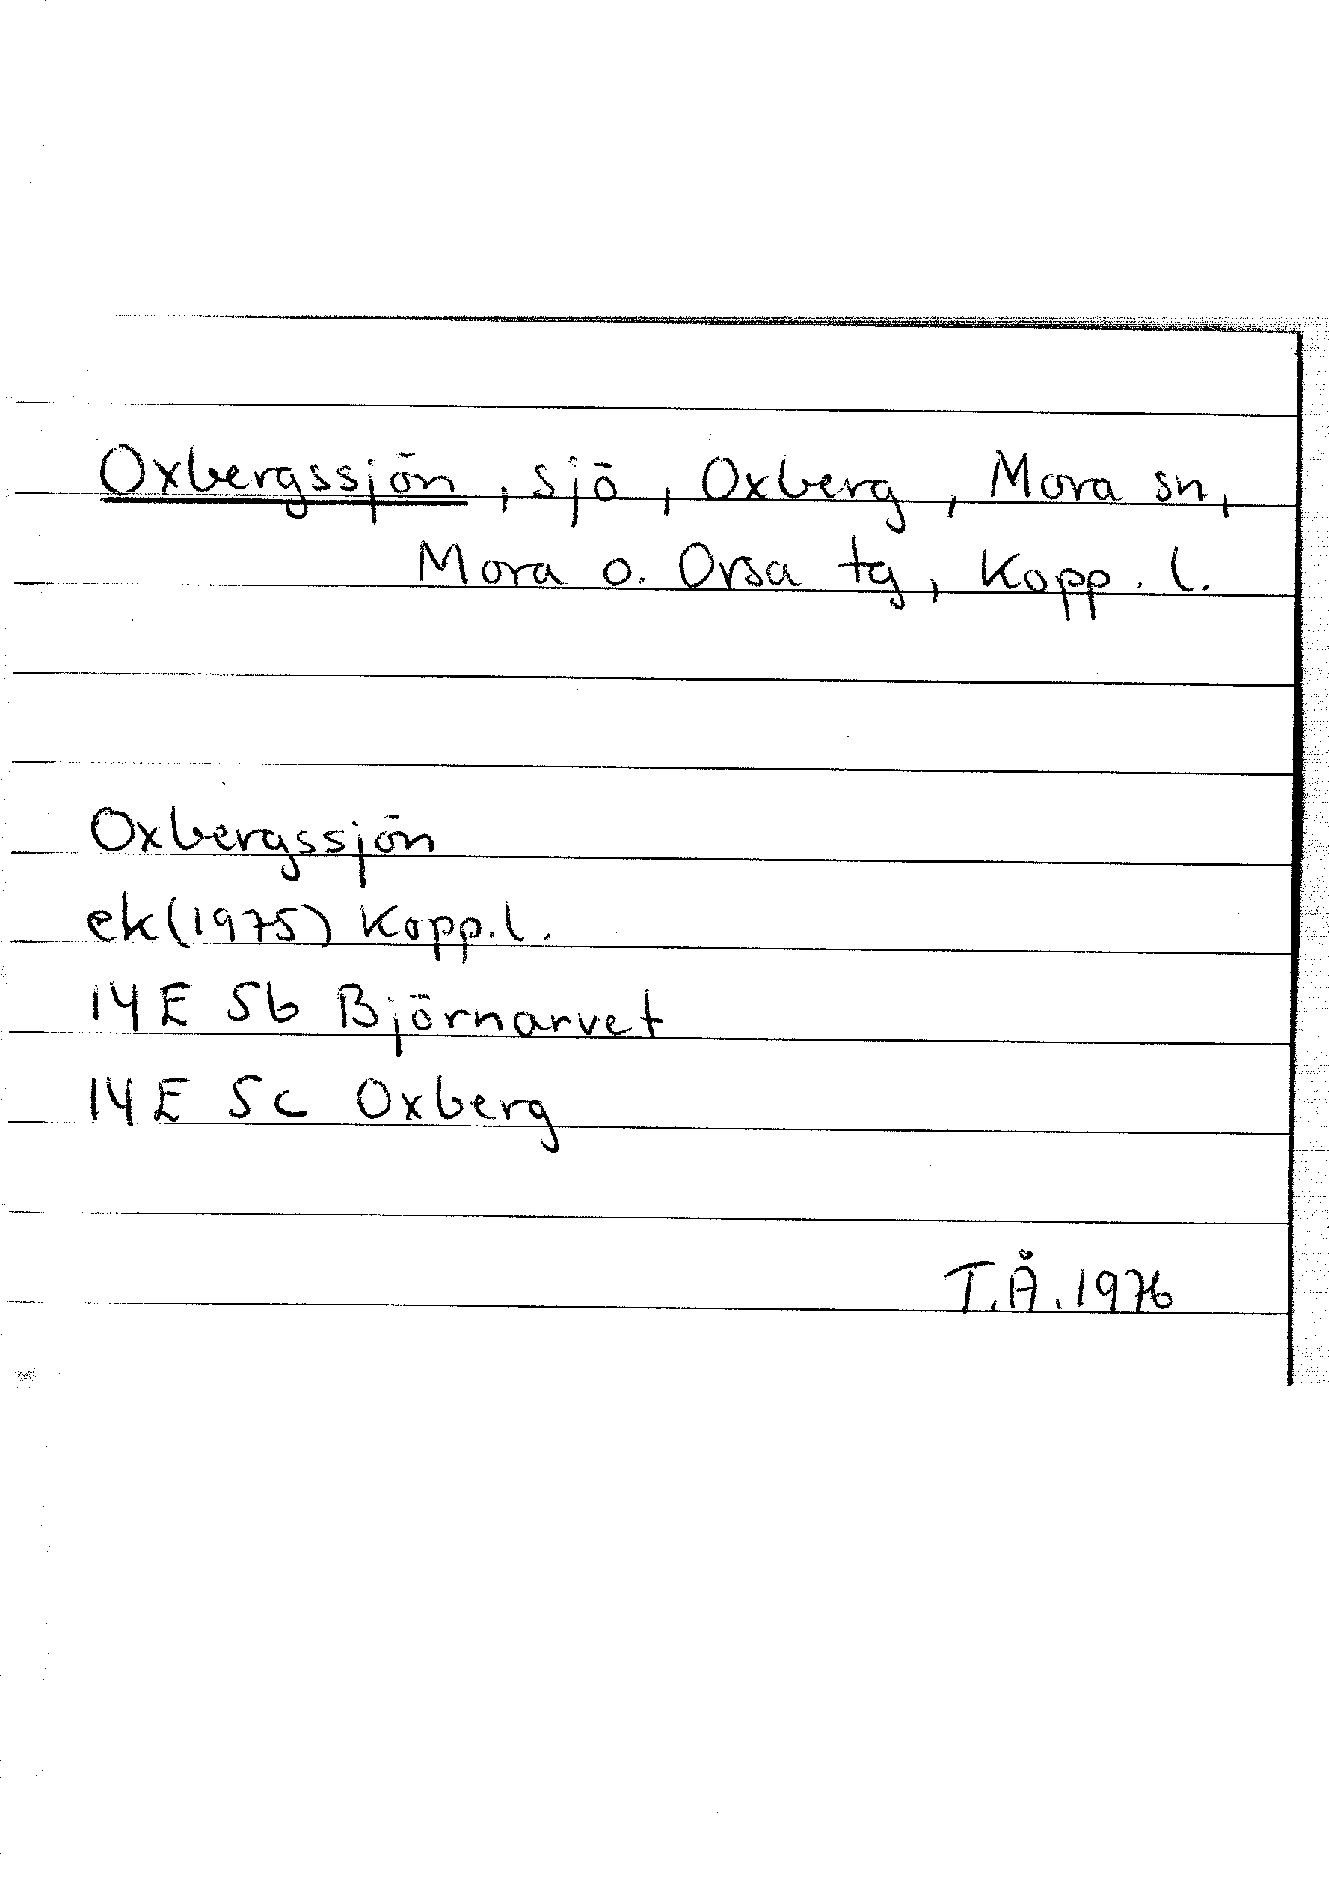 Oxbergssjön, sjö, Oxberg, Mora sn,
Mora o. Orsa tg, Kopp. l.
Oxbergssjön
ek(1975) Kopp.l.
14E 5b Björnarvet
14E 5c Oxberg
T.Å.1976